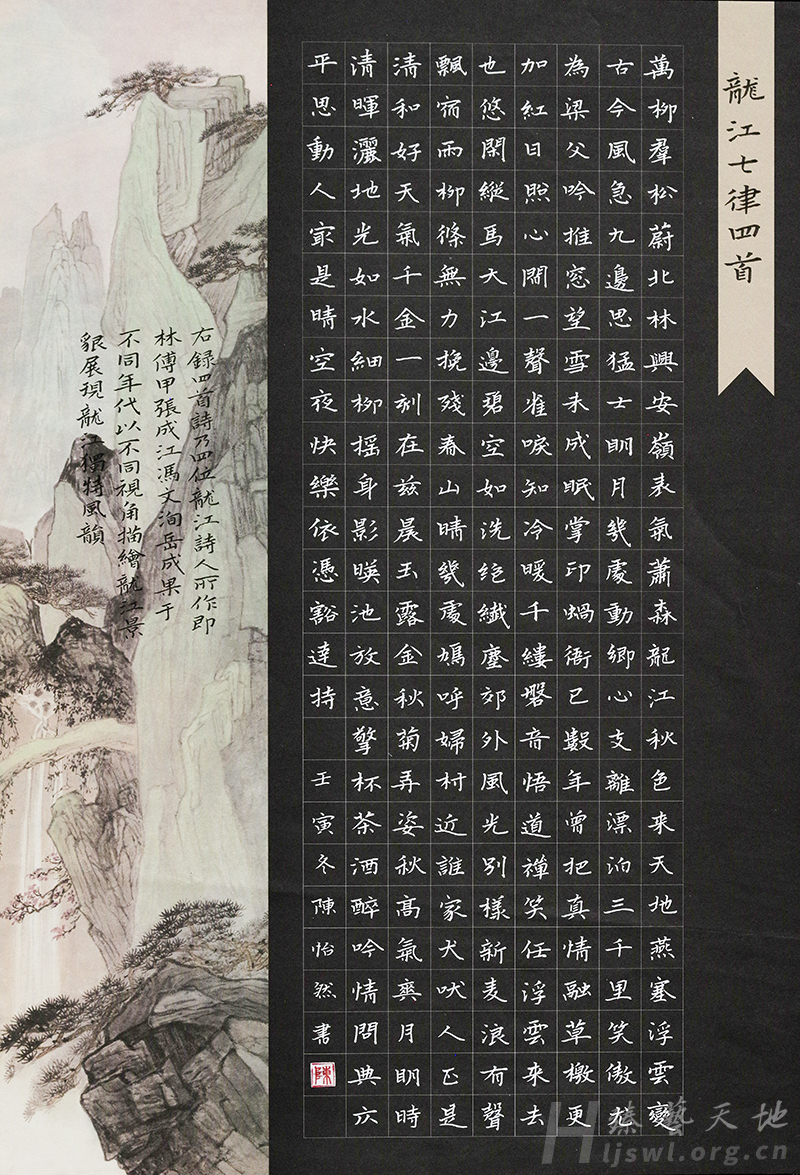 龍江七律四首
萬柳羣松蔚北林興安嶺表氣蕭森龍江秋色來天地燕塞浮雲變
古今風急九邊思猛士明月幾處動鄉心支離漂泊三千里笑傲尤
為梁父吟推窓望雪未成眠掌印蝸衙已數年曾把真情融草檄更
加紅日照心間一聲隺唳知冷暖千縷磬音悟道禪笑任浮雲來去
也悠閑縱馬大江邊碧空如洗絕纖塵郊外風光別樣新麦浪有聲
飄宿雨柳條無力挽殘春山晴幾處鳩呼婦村近誰家犬吠人正是
清和好天氣千金一刻在茲晨玉露金秋菊弄姿秋高氣爽月明時
清暉灑地光如水細柳摇身影暎池放意擎杯茶酒醉吟情問典六
平思動人冣是晴空夜快樂依憑豁達持 壬寅冬陳怡然書
陳
右錄四首詩乃四位龍江詩人所作即
林傳甲張成江馮文洵岳成果于
不同年代以不同視角描繪龍江景
貌展現龍江獨特風韻
臻藝天地
Hljswl.org.cn